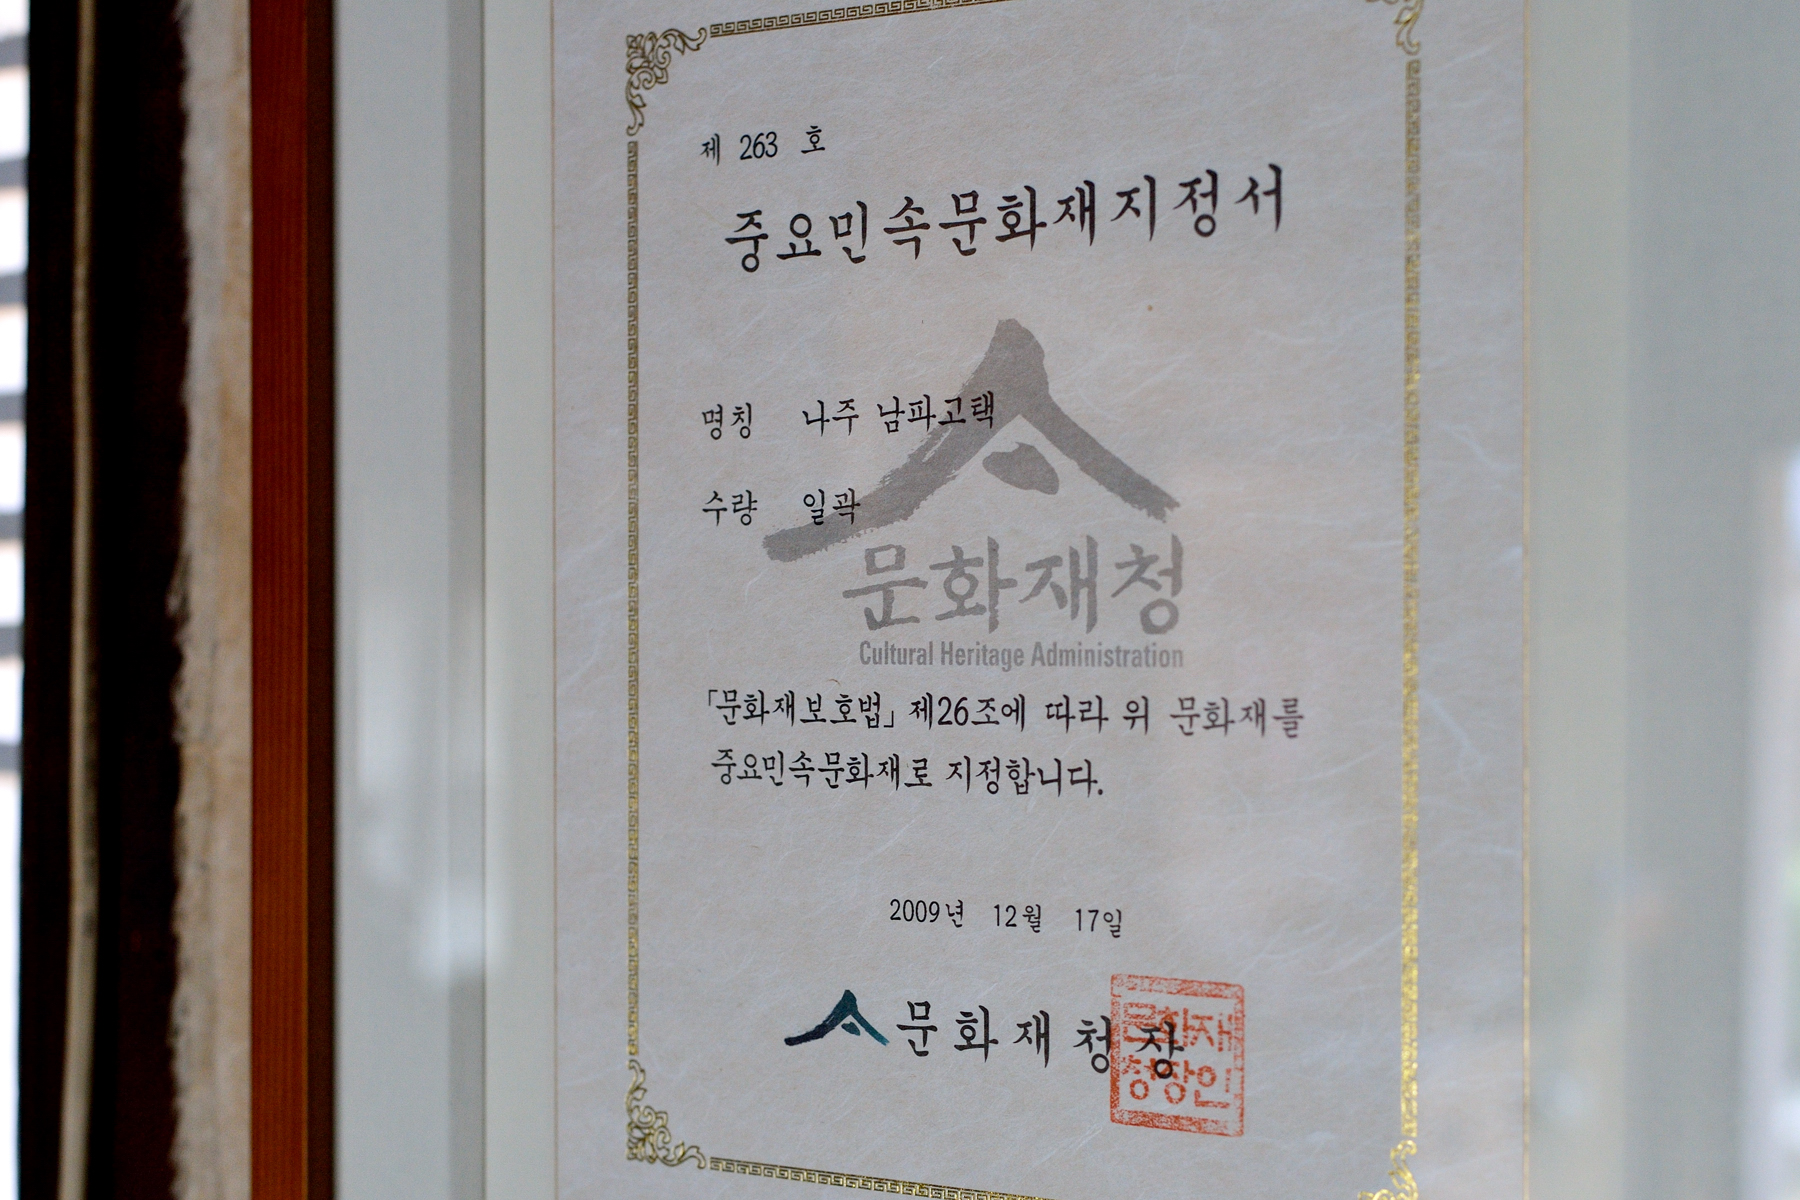 제 263 호
중요민속문화재지정서
명칭 나주 남파고택
수량 일곽
문화재청
Cultural Heritage Administration
「문화재보호법」 제26조에 따라 위 문화재를
중요민속문화재로 지정합니다.
2009년 12월 17일
문화재청장
문화재
청장인